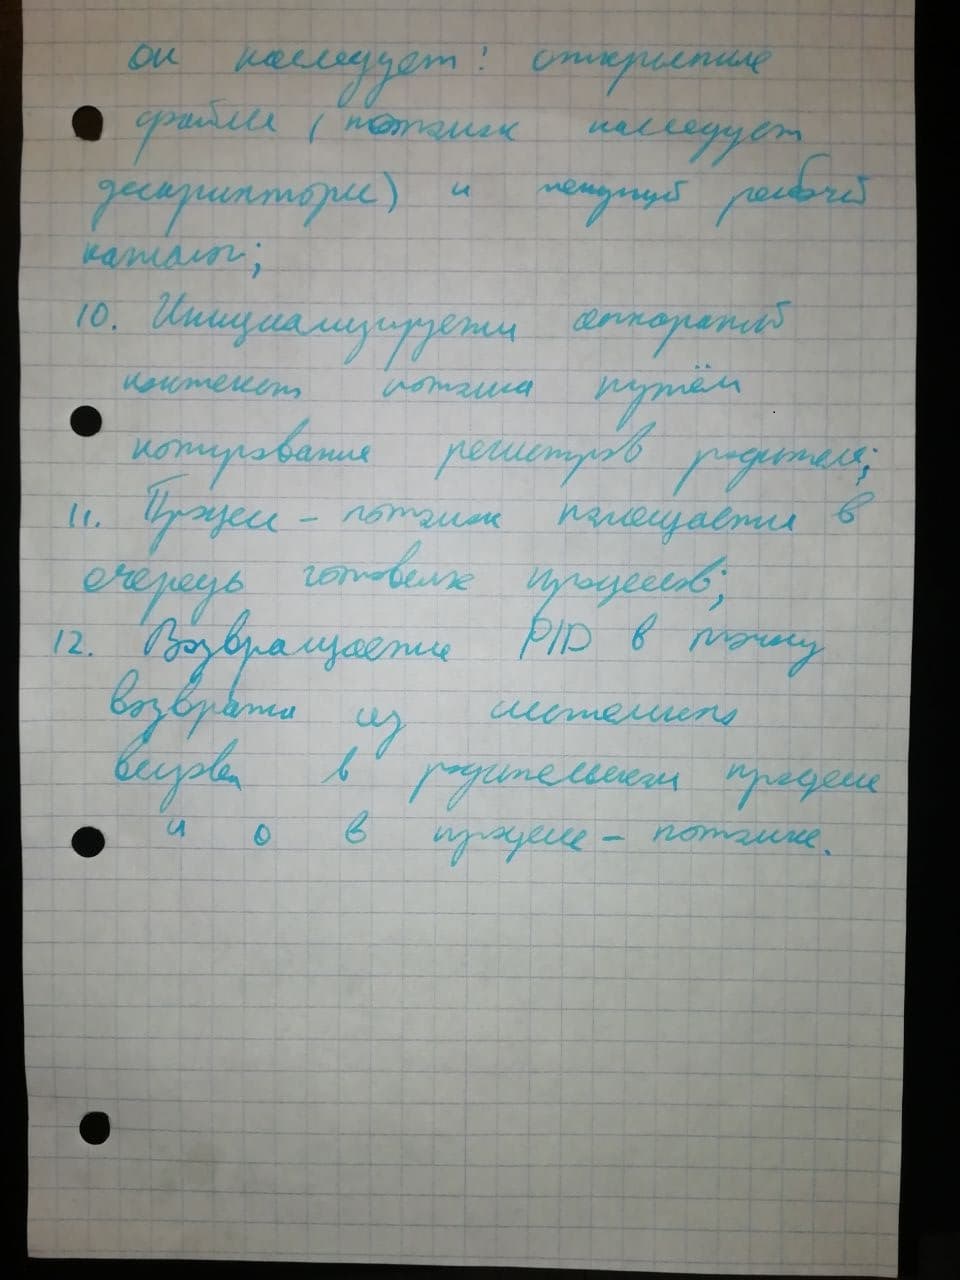 он наследует: открытые
файлы (потомок наследует
дескрипторы) и текущий рабочий
каталог;
10. Инициализируется аппаратный
контекст потомка путём
копирования регистров родителя;
11. Процесс - потомок помещается в
очередь готовых процессов;
12. Возвращается PID в точку
возврата из системного
вызова в родительском процессе
и 0 в процессе - потомке.